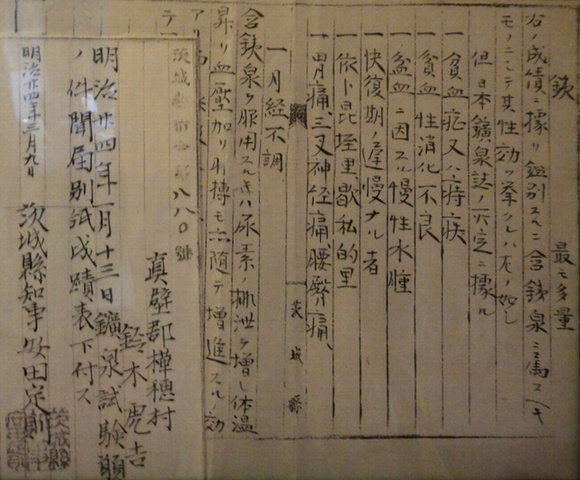 鉄
最モ多量
右ノ成績ニ據リ鑑別スルニ含鉄泉ニ属スヘキ
モノニシテ其性効ヲ挙クレハ左ノ如シ
但日本鑛泉誌ノ穴定ニ據ル
一貧血症又ハ痔疾
一貧血性消化不良
一盆血ニ因スル慢性水腫
一快復期ノ牽慢ナル者
一依卜昆垤里、歇私的里
一胃痛、三叉神経痛、腰臀痛、
一月経不調
茨城縣
含鉄泉ヲ服用スルキハ尿素ノ排泄ヲ増シ体温
昇リ血圧加リ脈搏モ亦随テ増進スルノ効
アリ
テ
茨城縣指令第八八〇號
真壁郡樺穂村
鈴木虎吉
明治廿四年一月十三日鑛泉試験願
ノ件聞届別紙成蹟表下付ス
明治廿四年三月九日
茨城縣知事安田定則